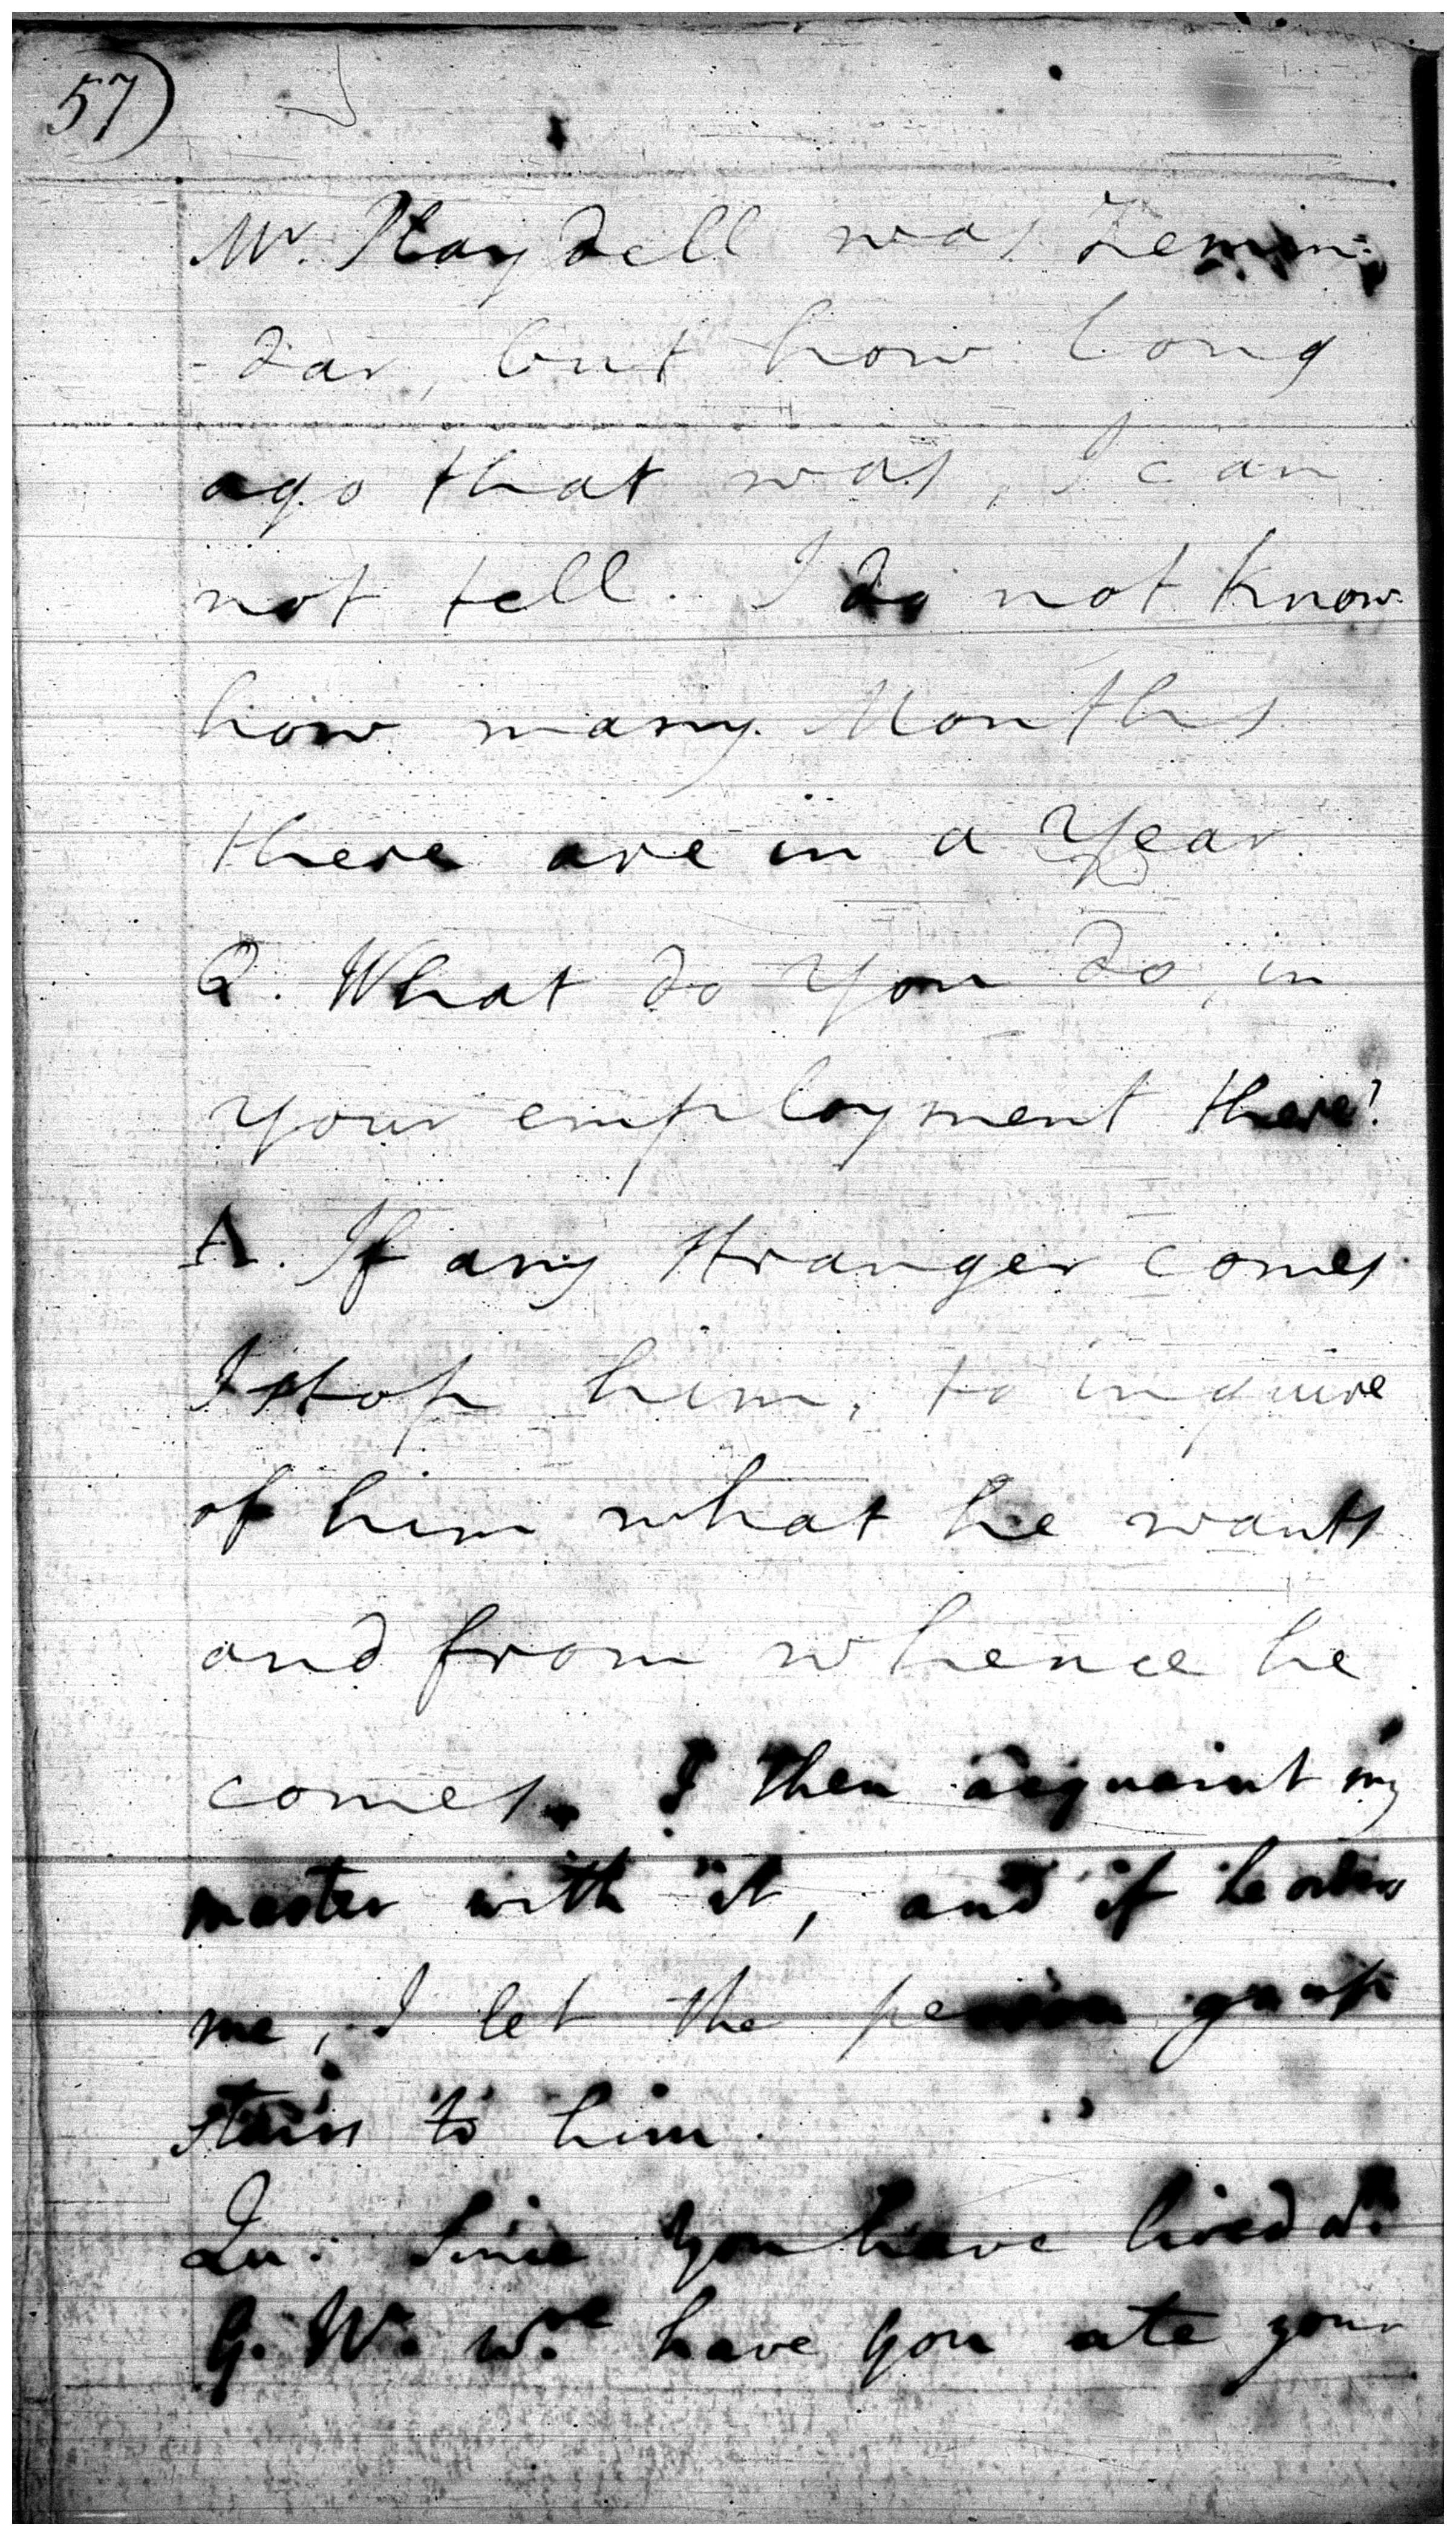 57)
Mr. Playdell was Zemin=
-dar, but how long
ago that was, I can
not tell. I do not know
how many Months
there are in a Year
Q. What do you do, in
your employment there?
A. If any stranger comes
I stop him, to inquire
of him what he wants
and from whence he
comes. I then acquaint my
master with it, and if he orders
me, I let the person go up
stairs to him.
Qu: Since you have lived at
G. W. wre have you ate your